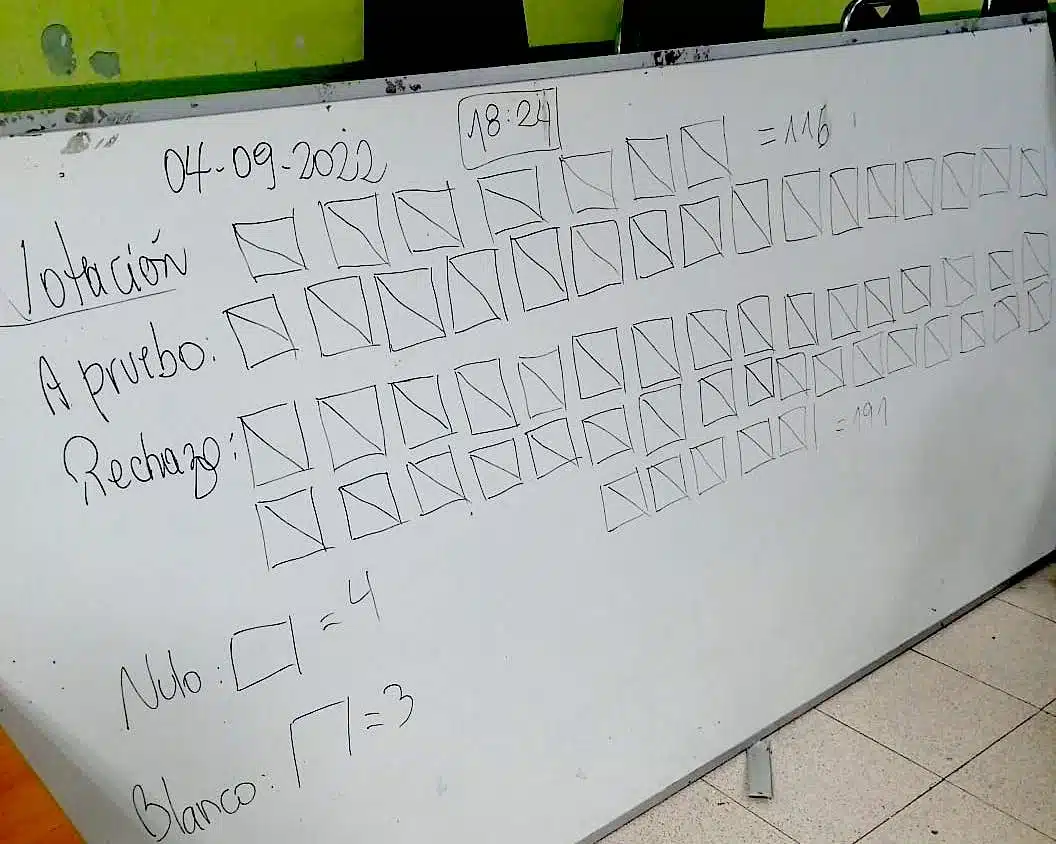 04-09-2022
18:24
Votación
= 116
Apruebo:
Rechazo:
= 191
Nulo: = 4
Blanco: = 3